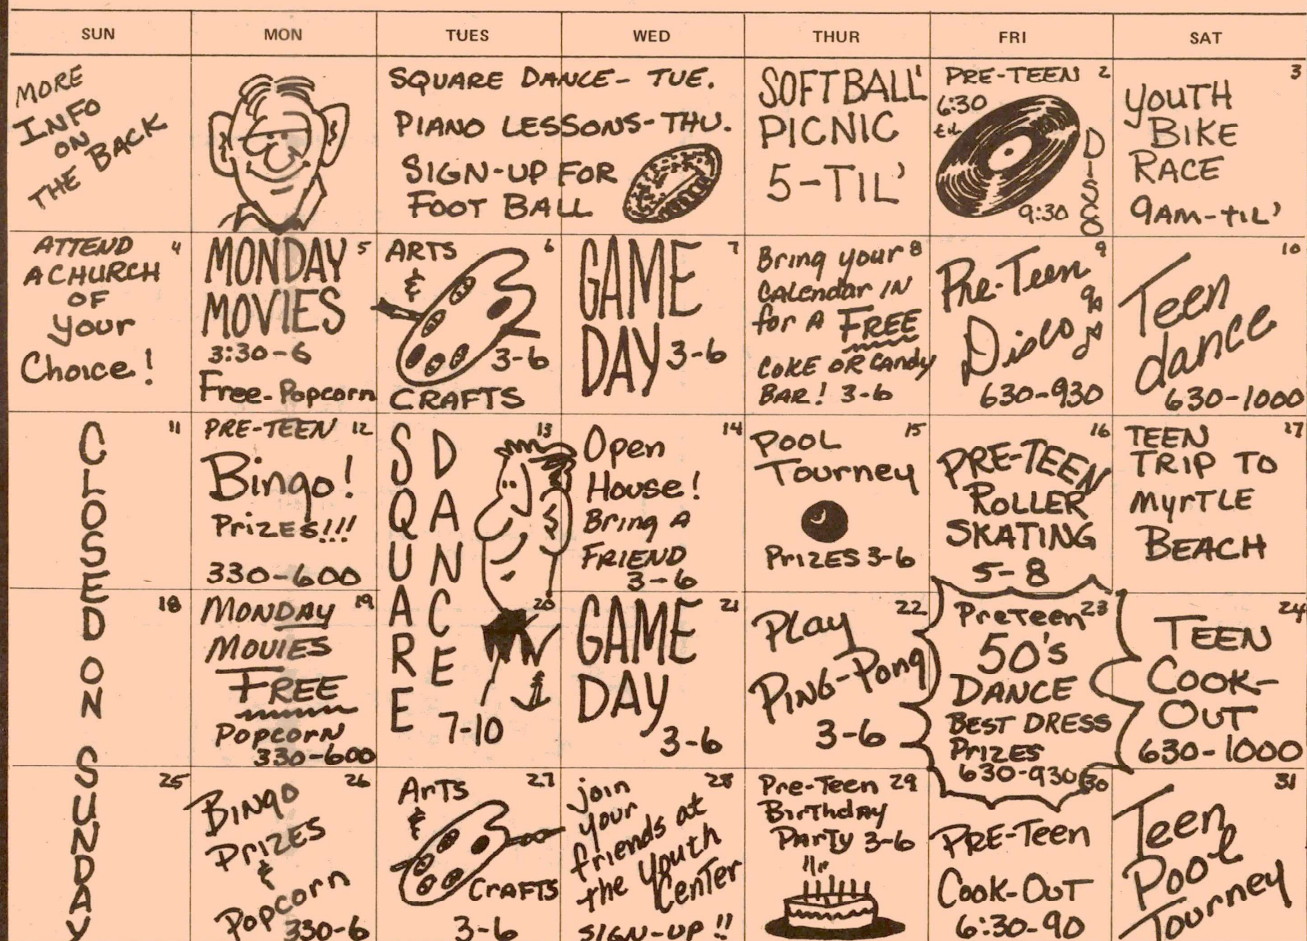 SUN
MON
TUES
WED
THUR
FRI
SAT
MORE
INFO
ON
THE BACK
SQUARE DANCE- TUE.
PIANO LESSONS-THU.
SIGN-UP FOR
FOOT BALL
1
SOFTBALL
PICNIC
5-TIL'
PRE-TEEN 2
6:30
til
DISCO
9:30
3
YOUTH
BIKE
RACE
9AM-TIL'
ATTEND 4
A CHURCH
OF
your
Choice!
MONDAY 5
MOVIES
3:30-6
Free-Popcorn
ARTS 6
&
3-6
CRAFTS
GAME 7
DAY 3-6
Bring your 8
CALendar IN
for A FREE
COKE OR CANDY
BAR! 3-6
9
Pre-Teen
Disco
630-930
10
Teen
dance
630-1000
11
CLOSED ON SUNDAY
PRE-TEEN 12
Bingo!
Prizes!!!
330-600
13
SQUARE
DANCE
7-10
Open 14
House!
Bring A
FRIEND
3-6
POOL 15
Tourney
PRIZES 3-6
16
PRE-TEEN
ROLLER
SKATING
5-8
TEEN 17
TRIP TO
MYRTLE
BEACH
18
MONDAY 19
MOVIES
FREE
POPCORN
330-600
20
GAME 21
DAY
3-6
Play 22
PING-PONG
3-6
PreTeen 23
50's
DANCE
BEST DRESS
PRIZES
630-930
24
TEEN
COOK-
OUT
630-1000
25
26
BINGO
PRIZES
&
POPCORN
330-6
ARTS 27
&
CRAFTS
3-6
join 28
your
friends at
the Youth
Center
SIGN-UP !!
Pre-Teen 29
BirthdAy
PArTy 3-6
30
PRE-Teen
Cook-Out
6:30-90
31
Teen
Pool
Tourney